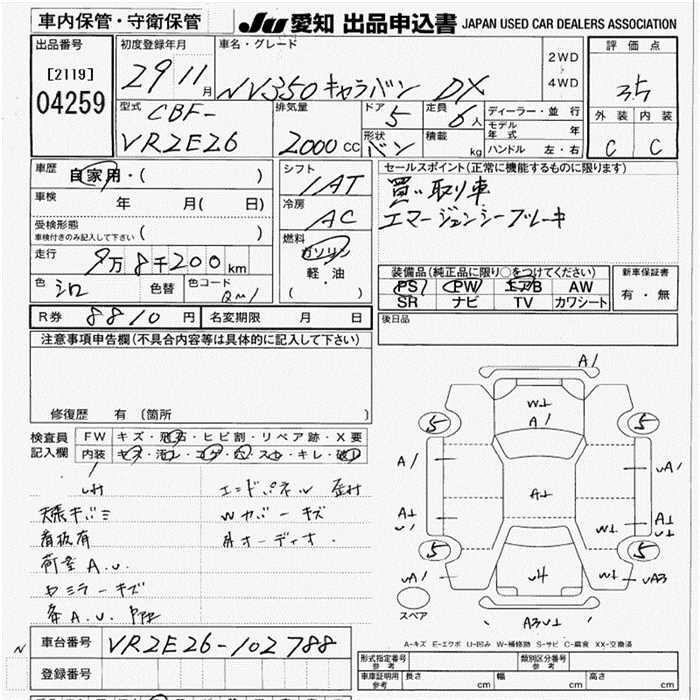 車内保管・守衛保管
JU 愛知 出品申込書 JAPAN USED CAR DEALERS ASSOCIATION
出品番号
[2119]
04259
初度登録年月
29 11
年 月
車名・グレード
NV350キャラバン DX
2WD
4WD
評価点
3.5
外装 内装
C C
型式
CBF-
VR2E26
排気量
2000 CC
ドア
5
定員
6人
形状
バン
積載
kg
ディーラー・並行
モデル年式 年
ハンドル 左・右
車歴
自家用・( )
車検
年 月( 日)
受検形態
車検付きのみ記入して下さい ( )
走行
9万8千200km
色
シロ
色替
色コード
QM1
シフト
IAT
冷房
AC
燃料
ガソリン
軽・油
( )
セールスポイント(正常に機能するものに限ります)
買い取り車
エマージェンシーブレーキ
装備品(純正品に限り○をつけてください)
PS PW エアB AW
SR ナビ TV カワシート
新車保証書
有・無
R券 8810 円
名変期限 月 日
後日品
注意事項申告欄(不具合内容等は具体的に記入して下さい)
修復歴 有(箇所 )
検査員
記入欄
FW キズ・飛石・ヒビ割・リペア跡・X要
内装 キズ・汚レ・コゲ・穴・スレ・キレ・破レ
天張キバミ
看板有
荷室A.U.
エンドパネル
Wカバーキズ
外オーディオ
ドミラーキズ
車台番号 VR2E26-102788
登録番号
A1
W⊥
A1
5
5
A1
uA1
A⊥
A⊥
U1
A⊥
U⊥
W⊥
5
5
uA1
U4
W⊥
uA3
A3U⊥
スペア
A-キズ E-エクボ U-凹み W-補修跡 S-サビ C-腐食 XX-交換済
形式指定番号
参考
類別区分番号
参考
車庫証明用
参考
長さ cm
幅 cm
高さ cm